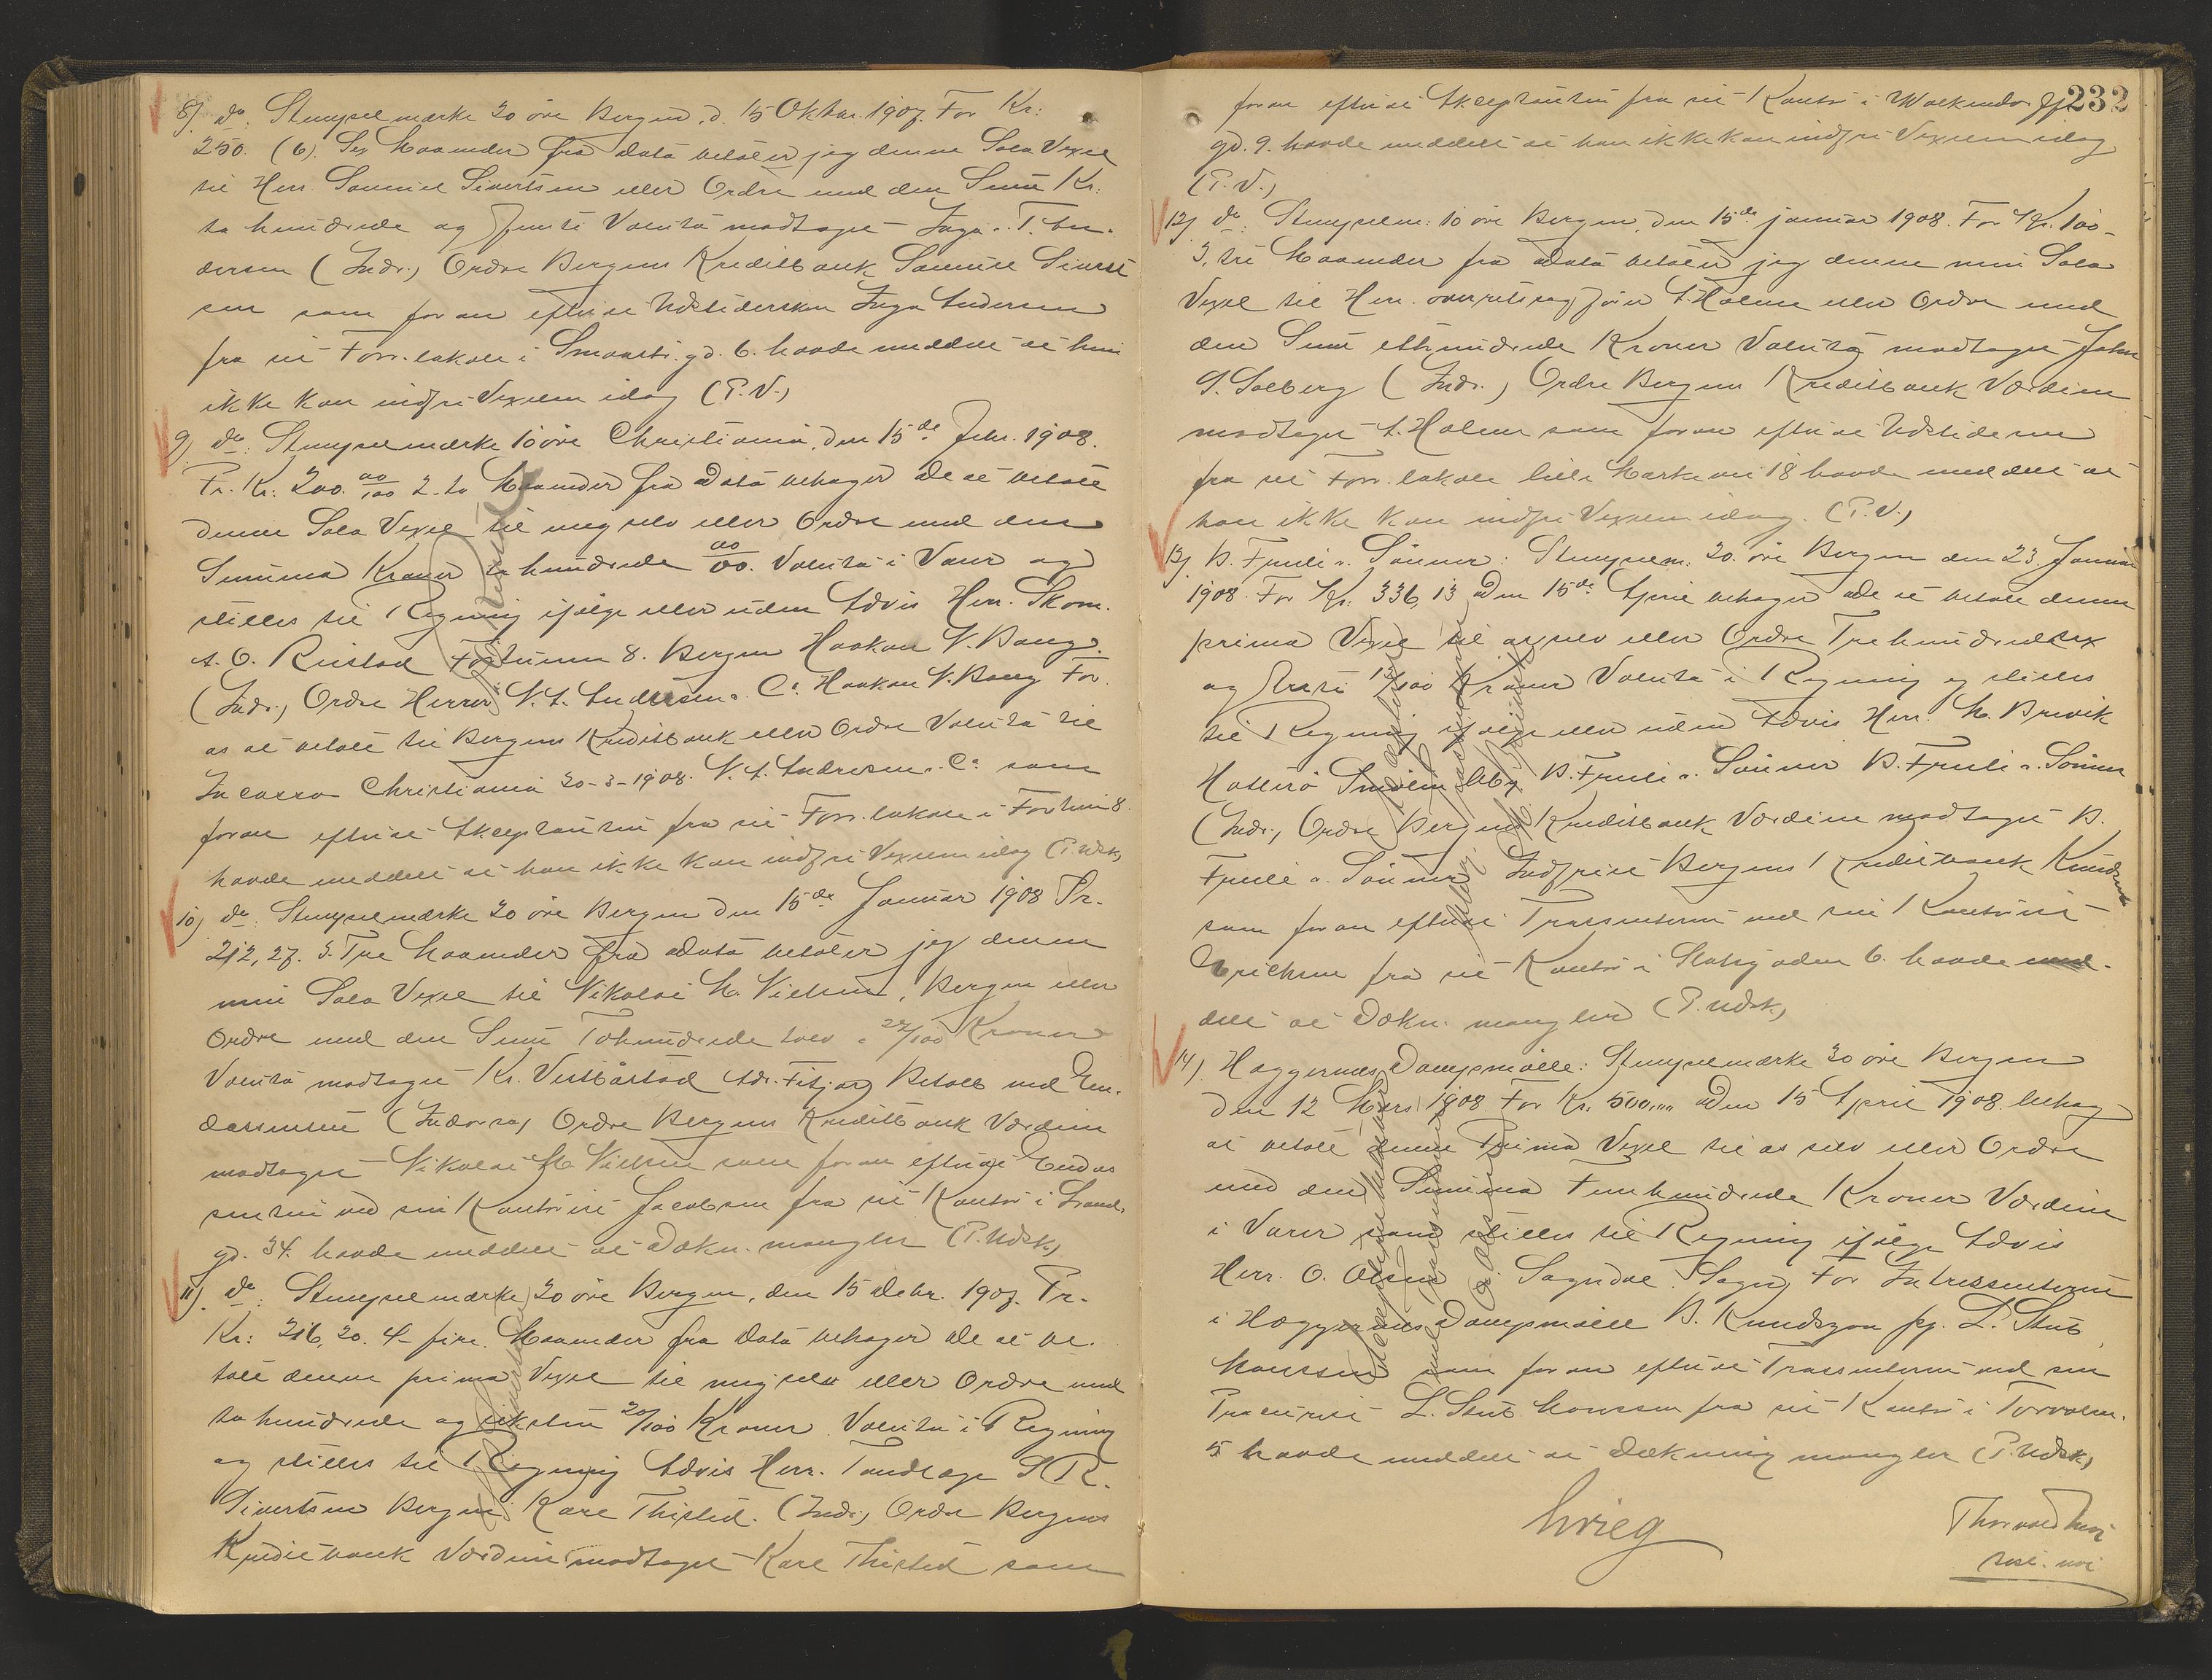 8) do: Stempelmærke 20 øre Bergen, d. 15 Oktbr. 1907. For Kr:
250. (6). Sex Maaneder fra Dato betaler jeg denne Sola Vexel
til Herr Samuel Sivertsen eller Ordre med den Sum Kr:
to hundrede og femti Valuta modtaget Inga T. An-
dersen (Indr.) Ordre Bergens Kreditbank Samuel Sivert
sen som foran efterat Udstedersken Inga Andersen
fra sit Forr. lokale i Smaastr. gd. 6. havde meddelt at hun
ikke kan indfri Vexelen idag (P.V.)
9) do: Stempelmærke 10 øre Christiania, den 15de Febr. 1908.
Pr. Kr: 200. 00/100 2. to Maaneder fra Dato behager De at betale
denne Sola Vexel til mig selv eller Ordre med den
Summa Kroner to hundrede 00/00. Valuta i Varer og
stilles til Regning ifølge eller uden Advis Herr. Skom.
A. O. Rustad Fortunen 8. Bergen Haakon V. Bang.
(Indr.) Ordre Herrer N. A. Andresen & Co. Haakon V. Bang For
os at betale til Bergens Kreditbank eller Ordre Valuta til
Incasso Christiania 20-3-1908. N. A. Andresen & Co som
foran efterat Akceptanten fra sit Forr. lokale i Fortunen 8.
havde meddelt at han ikke kan indfri Vexelen idag (P. Udsk.)
10) do: Stempelmærke 20 øre Bergen den 15de Januar 1908 Pr.
212,27. 3. Tre Maaneder fra Dato betaler jeg denne
min Sola Vexel til Nikolai M. Nielsen, Bergen eller
Ordre med den Sum Tohundrede tolv & 27/100 Kroner
Valuta modtaget Kr. Vestbøstad Adr. Fitjar Betalt ved En-
dossenten (Indorso) Ordre Bergens Kreditbank Værdien
modtaget Nikolai M. Nielsen som foran efterat Endos
senten ved sin Kontorist Jacobsen fra sit Kontor i Strand-
gd. 34. havde meddelt at Dækn. mangler (P. Udsk.)
11) do: Stempelmærke 20 øre Bergen, den 15 Debr. 1907. Pr.
Kr: 216,20. 4- fire Maaneder fra Dato behager De at be-
tale denne prima Vexel til mig selv eller Ordre med
to hundrede og seksten 20/100 Kroner Valuta i Regning
og stilles til Regning Advis Herr. Tandlæge S. R.
Sivertsen Bergen Kare Thisted. (Indr.) Ordre Bergens
Kreditbank Værdien modtaget Kare Thisted som
232
foran efterat Akceptanten fra sit Kontor i Walkendorffs
gd. 9. havde meddelt at han ikke kan indfri Vexelen idag
(P.V.)
12) do: Stempelm: 10 øre Bergen, den 15de januar 1908. For Kr. 100-
3, tre Maaneder fra Dato betaler jeg denne min Sola
Vexel til Herr. overretssagfører A. Holmer eller Ordre med
den Sum etthundrede Kroner Valuta modtaget John
S. Solberg (Indr.) Ordre Bergens Kreditbank Værdien
modtaget A. Holmer som foran efterat Udstederen
fra sit Forr. lokale lille Markevei 18 havde meddelt at
han ikke kan indfri Vexelen idag. (P.V.)
13) B. Friele & Sønner: Stempelm. 20. øre Bergen den 23. Januar
1908. For Kr. 336,13 Den 15de April behager De at betale denne
prima Vexel til os selv eller Ordre Trehundredesex
og tretti 13/100 Kroner Valuta i Regning og stilles
til Regning ifølge eller uden Advis Herr. M. Brevik
Hatterø Smølen B. Friele & Sønner B. Friele & Sønner
(Indr.) Ordre Bergens Kreditbank Værdien modtaget B.
Friele & Sønner Indfriet Bergens Kreditbank Knudsen
som foran efterat Trassenterne ved sin Kontorist
Erichsen fra sit Kontor i Slotsgaden 6. havde med-
delt at Dækn. mangler (P. Udsk.)
14) Hæggernæs Dampmølle: Stempelmærke 30 øre Bergen
den 12 Mars 1908 For Kr. 500,00 Den 15 April 1908 behag
at betale denne Prima Vexel til os selv eller Ordre
med den Summa Femhundrede Kroner Værdien
i Varer som stilles til Regning ifølge Advis
Herr. O. Olsen Sogndal Sogn, For Intressenterne
i Hæggernæs Dampmølle B. Knudszon pp. L. Stub
Monssen som foran efterat Trassenterne ved sin
Prokurist L. Stub Monssen fra sit Kontor i Torvalm.
5 havde meddelt at Dækning mangler (P. Udsk.)